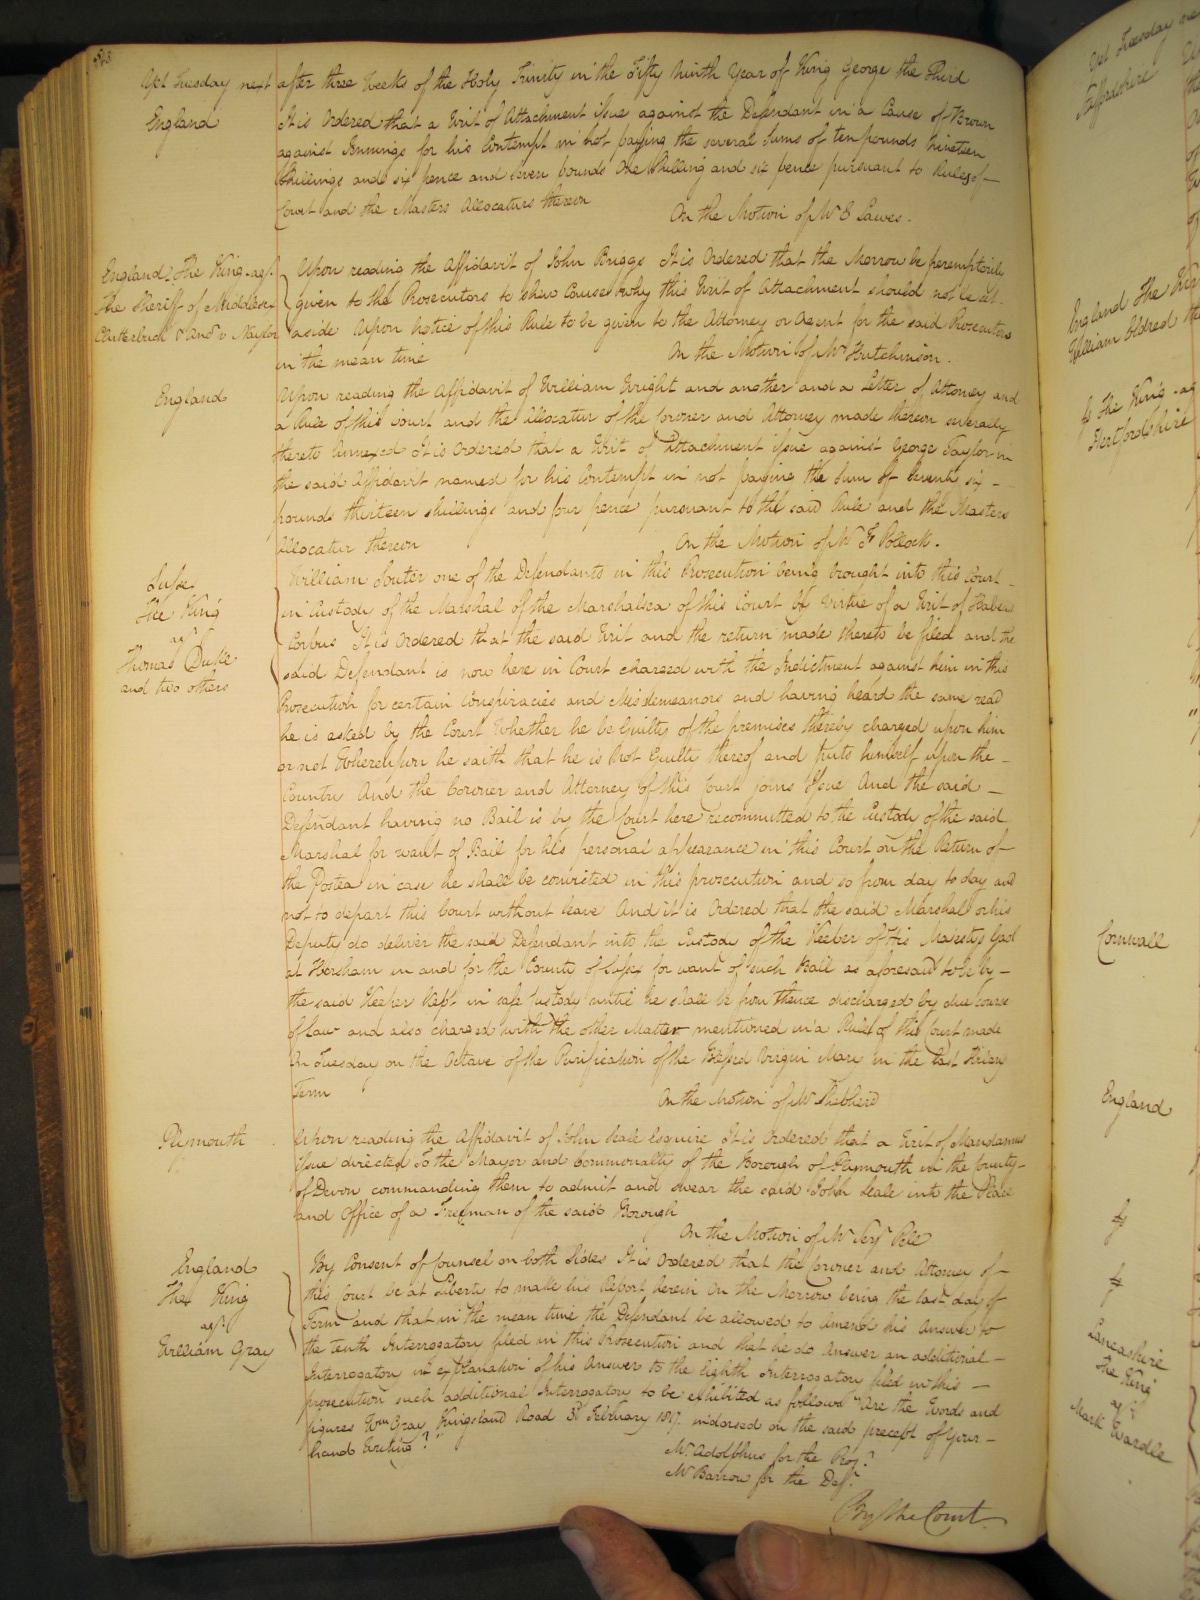 Yet Tuesday next after three Weeks of the Holy Trinity in the Fifty Ninth Year of King George the Third
England
It is Ordered that a Writ of Attachment issue against the Defendant in a Cause of Brown
against Jennings for his Contempt in not paying the several Sums of ten pounds nineteen
Shillings and six pence and seven pounds One Shilling and six pence pursuant to Rules of
Court and the Masters Allocaturs thereon
On the Motion of Mr E Lawes.
England The King agt.
The Sheriff of Middlesex
Clutterbuck & Anr v Naylor
Upon reading the Affidavit of John Briggs It is Ordered that the Morrow be peremptorily
given to the Prosecutors to shew Cause why this Writ of Attachment should not be set
aside Upon Notice of this Rule to be given to the Attorney or Agent for the said Prosecutors
in the mean time
On the Motion of Mr Hutchinson.
England
Upon reading the Affidavit of William Wright and another and a Letter of Attorney and
a Rule of this Court and the Allocatur of the Coroner and Attorney made thereon severally
thereto Annexed It is Ordered that a Writ of Attachment issue against George Taylor in
the said Affidavit named for his Contempt in not paying the Sum of Seventy six
pounds thirteen shillings and four pence pursuant to the said Rule and the Masters
Allocatur thereon
On the Motion of Mr F Pollock.
Sussex
The King
agt
Thomas Duke
and two others
William Souter one of the Defendants in this Prosecution being brought into this Court
in Custody of the Marshal of the Marshalsea of this Court by Virtue of a Writ of Habeas
Corpus It is Ordered that the said Writ and the return made thereto be filed and the
said Defendant is now here in Court charged with the Indictment against him in this
Prosecution for certain Conspiracies and Misdemeanors and having heard the same read
he is asked by the Court Whether he be Guilty of the premises thereby charged upon him
or not Whereupon he saith that he is Not Guilty thereof and puts himself upon the
Country And the Coroner and Attorney of this Court joins Issue And the said
Defendant having no Bail is by the Court here recommitted to the Custody of the said
Marshal for want of Bail for his personal appearance in this Court on the Return of
the Postea in case he shall be convicted in this prosecution and so from day to day and
not to depart this Court without leave And it is Ordered that the said Marshal or his
Deputy do deliver the said Defendant into the Custody of the Keeper of His Majestys Gaol
at Horsham in and for the County of Sussex for want of such Bail as aforesaid to be by
the said Keeper kept in safe Custody until he shall be from thence discharged by due course
of Law and also charged with the other Matter mentioned in a Rule of this Court made
On Tuesday on the Octave of the Purification of the Blessed Virgin Mary in the last Hilary
Term
On the Motion of Mr Shepherd
Plymouth
Upon reading the Affidavit of John Seale Esquire It is Ordered that a Writ of Mandamus
issue directed To the Mayor and Commonalty of the Borough of Plymouth in the County
of Devon commanding them to admit and swear the said John Seale into the Place
and Office of a Freeman of the said Borough
On the Motion of Mr Serjt Pell
England
The King
agt.
William Gray
By Consent of Counsel on both Sides It is Ordered that the Coroner and Attorney of
this Court be at Liberty to make his Report herein On the Morrow being the last day of
Term and that in the mean time the Defendant be allowed to Amend his Answer to
the tenth Interrogatory filed in this Prosecution and that he do Answer an additional
Interrogatory in explanation of his Answer to the Eighth Interrogatory filed in this
prosecution such additional Interrogatory to be exhibited as follows "Are the Words and
figures Wm Gray Kingsland Road 3d February 1817. indorsed on the said precept of Your
hand Writing?"
Mr Adolphus for the Pros.
Mr Barrow for the Deft.
By the Court
Yet Tuesday
Staffordshire
England The King
William Eldred
The King ag
Hertfordshire
Cornwall
England
Lancashire
The King
agt
Mark Wardle